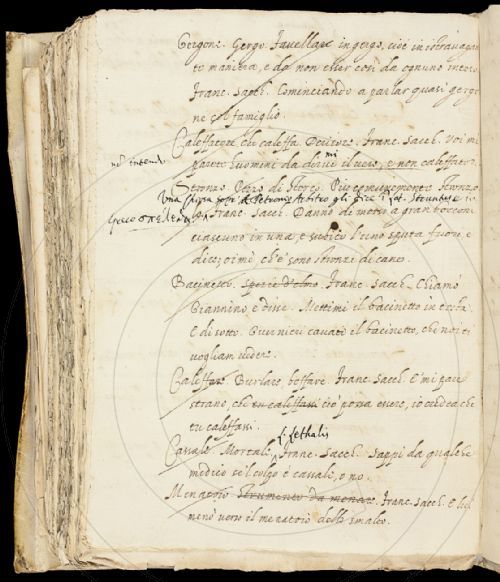 Gergone. Gergo. Favellare in gergo, cioè in istravagan
te maniera, e da non esser così da ognuno inteso.
Franc. Sacch. Cominciando a parlar quasi gergo
ne col famiglio.
Caleffatore chi caleffa. Derisore. Franc. Sacch. Voi mi
parete huomini da dirmi il vero, e non caleffatori.
nel intende
Stronzo. Pezzo di sterco. Più comunemente Stronzo
Una sopra Petronio Arbitro gli dice Lat. Struntus
Greco
Franc. Sacch. Danno di motto a gran bocconi
ciascuno in una, e subito l'uno sputa fuore e
dice; oimè ch'e' sono stronzi di cane.
Bacinetto. Spezie d'elmo. Franc. Sacch. Chiamò
Giannino e disse. Mettimi il bacinetto in testa.
E di sotto. Guernieri cavati il bacinetto, che noi ti
vogliam vedere.
Caleffare. Burlare, beffare. Franc. Sacch. E' mi pare
strano, che tu caleffassi ciò possa essere, io credea che
tu caleffassi.
L. Lethalis
Cassale. Mortale. Franc. Sacch. Sappi da qualche
medico se'l colpo è cassale, o no.
Menatoio Strumento da menare. Franc. Sacch. E
menò verso il menatoio dello smalto.